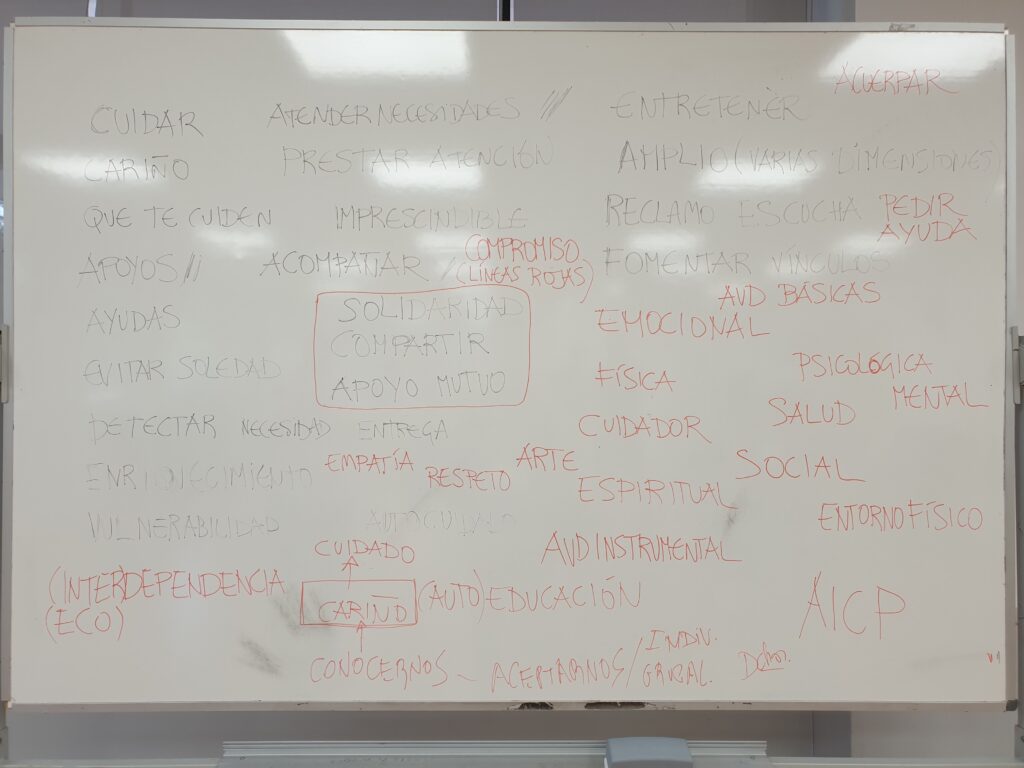 ACUERPAR
CUIDAR ATENDER NECESIDADES /// ENTRETENER
CARIÑO PRESTAR ATENCIÓN AMPLIO (VARIAS DIMENSIONES)
QUE TE CUIDEN IMPRESCINDIBLE RECLAMO ESCUCHA PEDIR
AYUDA
APOYOS /// ACOMPAÑAR / COMPROMISO
(LÍNEAS ROJAS) FOMENTAR VÍNCULOS
AVD BÁSICAS
AYUDAS SOLIDARIDAD EMOCIONAL
COMPARTIR
EVITAR SOLEDAD APOYO MUTUO FÍSICA PSICOLÓGICA
MENTAL
DETECTAR NECESIDAD ENTREGA CUIDADOR SALUD
ENRIQUECIMIENTO EMPATÍA RESPETO ARTE SOCIAL
ESPIRITUAL
VULNERABILIDAD AUTOCUIDADO ENTORNO FÍSICO
CUIDADO AVD INSTRUMENTAL
(INTER)DEPENDENCIA CARIÑO (AUTO)EDUCACIÓN AICP
(ECO)
CONOCERNOS - ACEPTARNOS / INDIV.
GRUPAL.